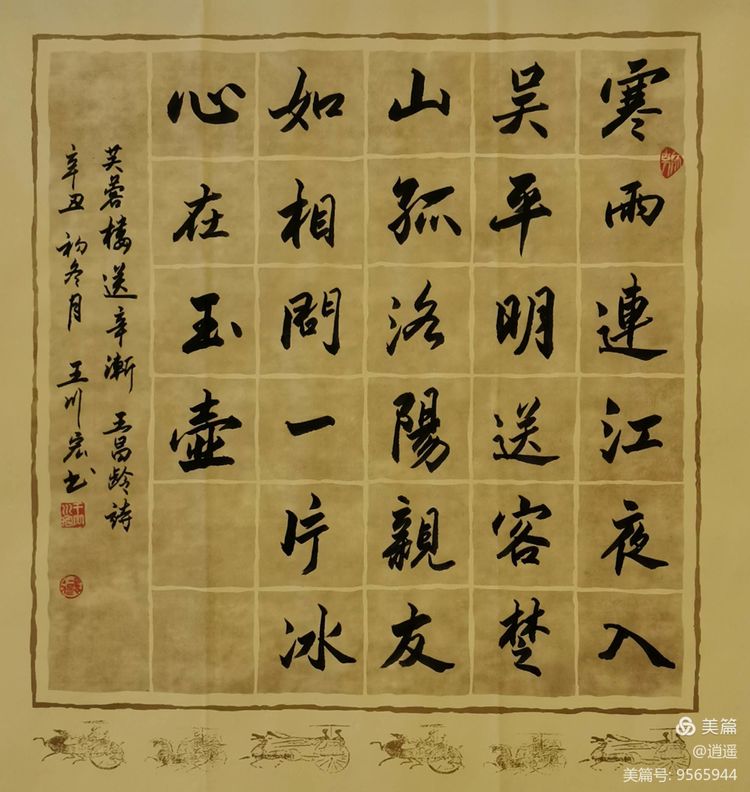 寒雨連江夜入
吴平明送客楚
山孤洛陽親友
如相問一片冰
心在玉壺
芙蓉樓送辛漸 王昌龄詩
辛丑初冬月 王川宏书
美篇
@逍遥
美篇号: 9565944